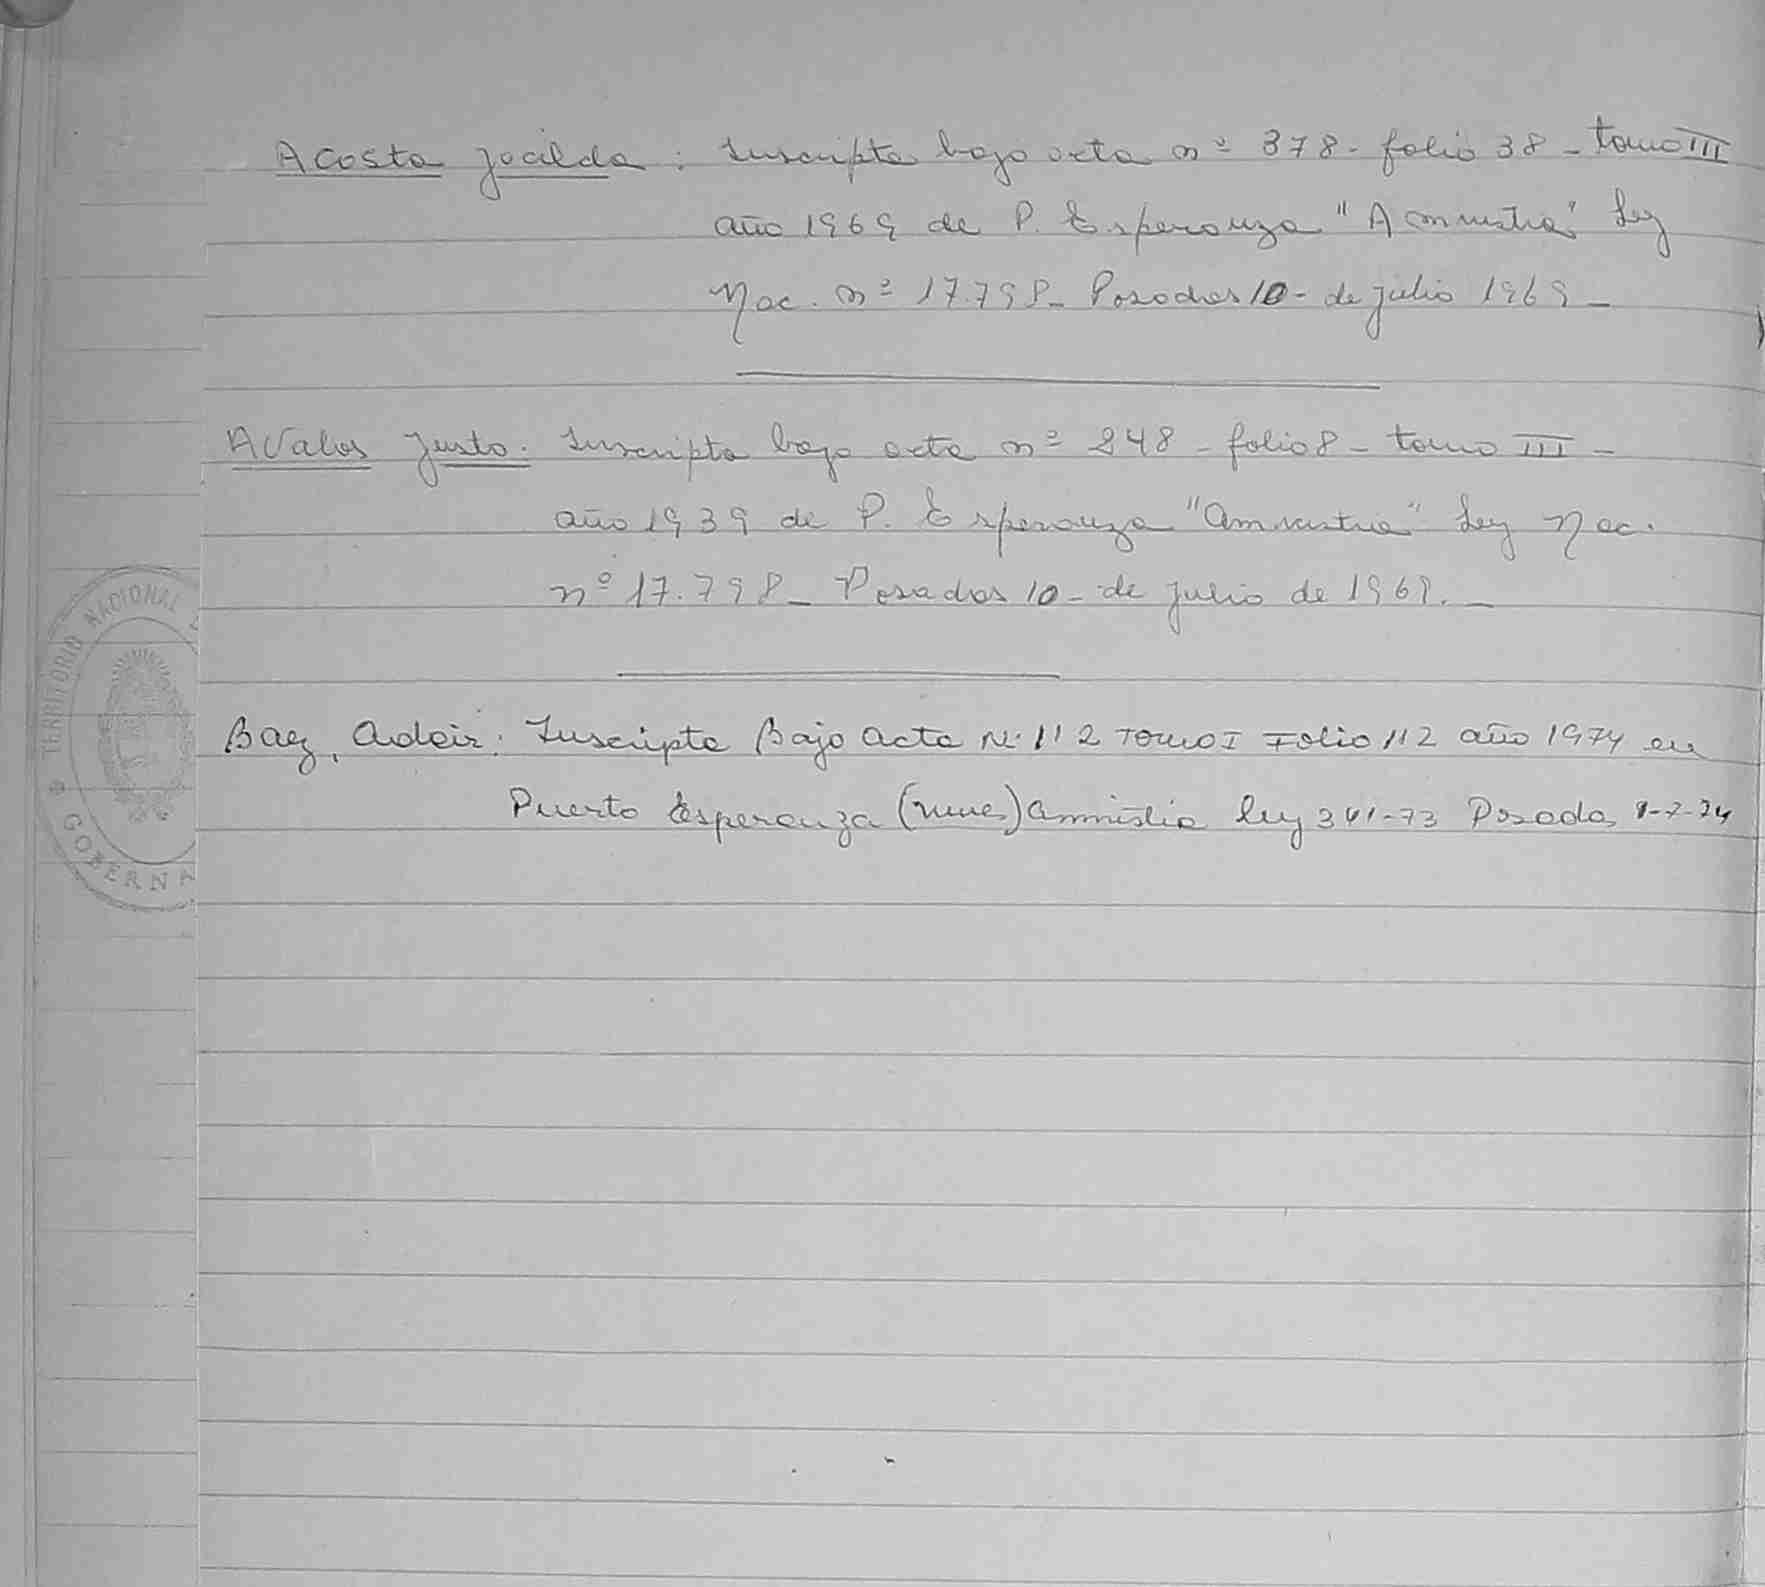 Acosta Jocilda : Inscripta bajo acta nº 378 - folio 38 - tomo III
año 1969 de P. Esperanza "Amnistia" Ley
Nac. nº 17.798 - Posadas 10 - de julio 1969 -
Avalos Justo : Inscripta bajo acta nº 248 - folio 8 - tomo III -
año 1939 de P. Esperanza "Amnistia" Ley Nac.
nº 17.798 - Posadas 10 - de julio de 1969. -
Baez, Adeir : Inscripta Bajo Acta Nº 112 Tomo I Folio 112 año 1974 en
Puerto Esperanza amnistia ley 341-73 Posadas 8-7-74
TERRITORIO NACIONAL
GOBERNA